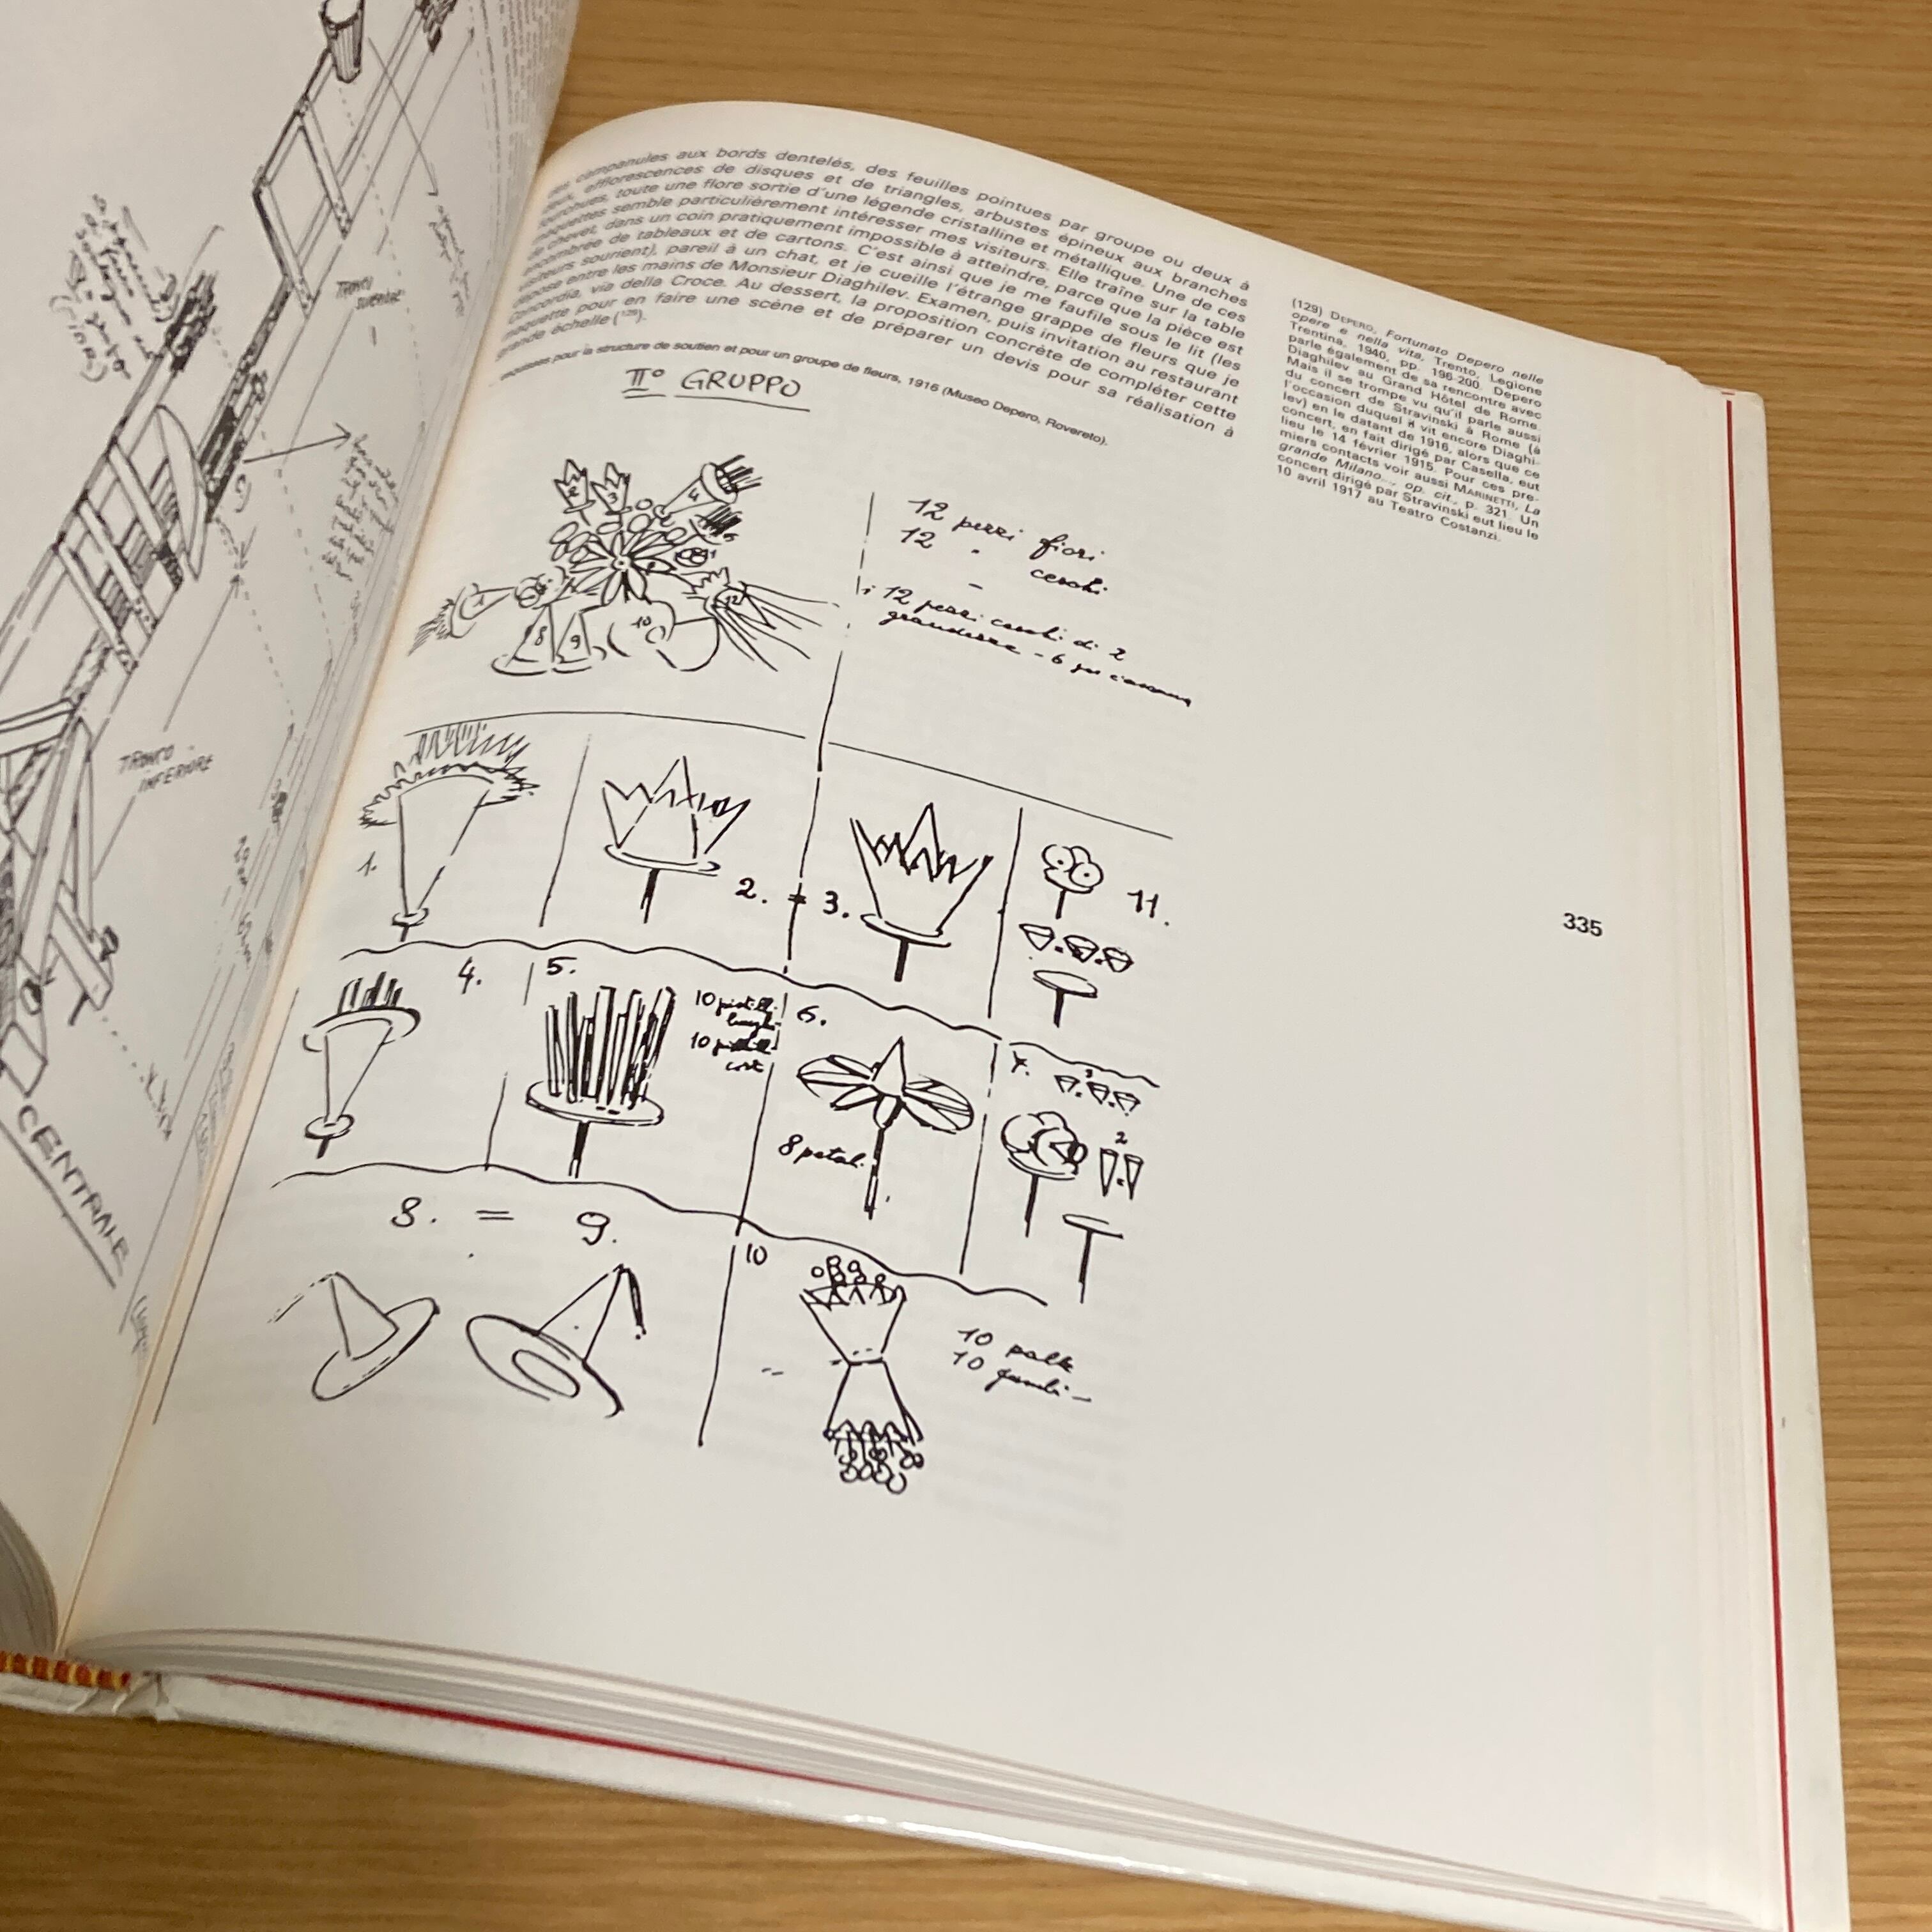 campanules aux bords dentelés, des feuilles pointues par groupe ou deux à
deux, efflorescences de disques et de triangles, arbustes épineux aux branches
fourchues, toute une flore sortie d'une légende cristalline et métallique. Une de ces
maquettes semble particulièrement intéresser mes visiteurs. Elle traîne sur la table
de chevet, dans un coin pratiquement impossible à atteindre, parce que la pièce est
encombrée de tableaux et de cartons. C'est ainsi que je me faufile sous le lit (les
visiteurs sourient), pareil à un chat, et je cueille l'étrange grappe de fleurs que je
dépose entre les mains de Monsieur Diaghilev. Examen, puis invitation au restaurant
Concordia, via della Croce. Au dessert, la proposition concrète de compléter cette
maquette pour en faire une scène et de préparer un devis pour sa réalisation à
grande échelle (129).
pour la structure de soutien et pour un groupe de fleurs, 1916 (Museo Depero, Rovereto).
(129) DEPERO, Fortunato Depero nelle
opere e nella vita, Trento, Legione
Trentina, 1940, pp. 196-200. Depero
parle également de sa rencontre avec
Diaghilev au Grand Hôtel de Rome.
Mais il se trompe vu qu'il parle aussi
du concert de Stravinski à Rome (à
l'occasion duquel il vit encore Diaghi-
lev) en le datant de 1916, alors que ce
concert, en fait dirigé par Casella, eut
lieu le 14 février 1915. Pour ces pre-
miers contacts voir aussi MARINETTI, La
grande Milano..., op. cit., p. 321. Un
concert dirigé par Stravinski eut lieu le
10 avril 1917 au Teatro Costanzi.
335
IIº GRUPPO
2
3
4
8
9
10
12
12 pezzi fiori
12 " cerchi
i 12 pezzi cerchi di 2
grandezze - 6 per
1.
2. = 3.
11.
4.
5.
10 pistilli
lunghi
10
6.
8 petali
7.
3
2
8. = 9.
10
10 palle
10 gambi -
TRONCO
SUPERIORE
TRONCO
INFERIORE
CENTRALE